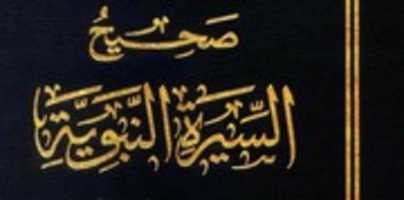 صَحِيحُ
السِّيرَةِ النَّبَوِيَّةِ